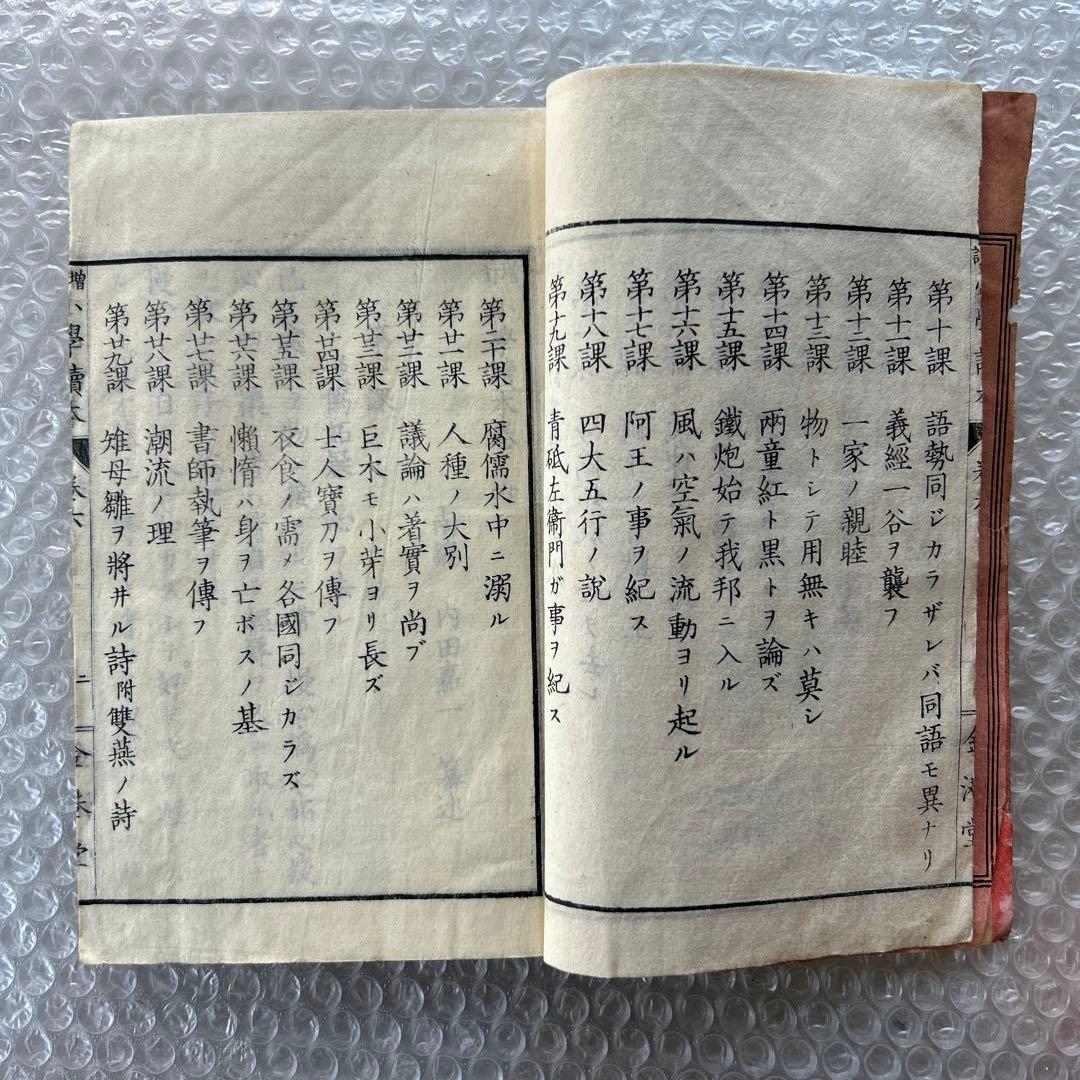 第十課 語勢同ジカラザレバ同語モ異ナリ
第十一課 義經一谷ヲ襲フ
第十二課 一家ノ親睦
第十三課 物トシテ用無キハ莫シ
第十四課 兩童紅ト黒トヲ論ズ
第十五課 鐵炮始テ我邦ニ入ル
第十六課 風ハ空氣ノ流動ヨリ起ル
第十七課 阿王ノ事ヲ紀ス
第十八課 四大五行ノ說
第十九課 青砥左衞門ガ事ヲ紀ス
第二十課 腐儒水中ニ溺ル
第廿一課 人種ノ大別
第廿二課 議論ハ著實ヲ尚ブ
第廿三課 巨木モ小芽ヨリ長ズ
第廿四課 士人寶刀ヲ傳フ
第廿五課 衣食ノ需メ各國同ジカラズ
第廿六課 懶惰ハ身ヲ亡ボスノ基
第廿七課 書師執筆ヲ傳フ
第廿八課 潮流ノ理
第廿九課 雉母雛ヲ將井ル詩附雙燕ノ詩
增 小學讀本 卷六 二 金港堂